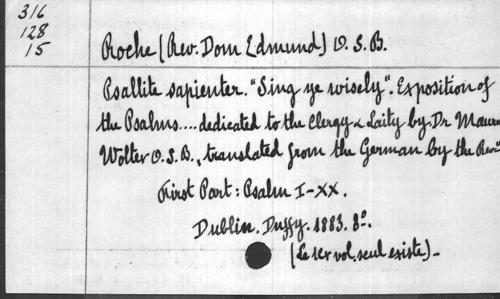 316
128
15
Roche (Rev. Dom Edmund) O. S. B.
Psallite sapienter. "Sing ye wisely". Exposition of
the Psalms.... dedicated to the Clergy & Laity by Dr Maurus
Wolter O. S. B., translated from the German by the Revd
First Part: Psalm I-XX.
Dublin. Duffy. 1883. 8º.
(Le 1er vol. seul existe).